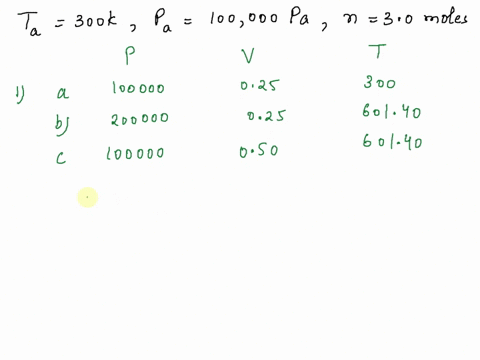 Ta = 300k, Pa = 100,000 Pa, n = 3.0 moles
P V T
1) a 100000 0.25 300
b) 200000 0.25 601.40
c 100000 0.50 601.40